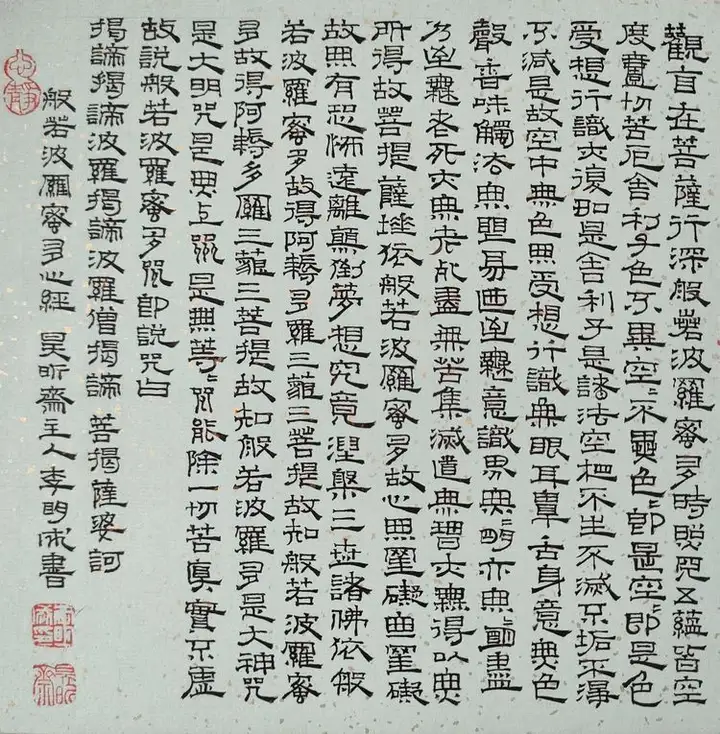 觀自在菩薩行深般若波羅蜜多時照見五蘊皆空
度一切苦厄舍利子色不異空〻不異色〻即是空〻即是色
受想行識亦復如是舍利子是諸法空相不生不滅不垢不淨
不減是故空中無色無受想行識無眼耳鼻舌身意無色
聲香味觸法無眼界乃至無意識界無〻明亦無〻明盡
乃至無老死亦無老死盡無苦集滅道無智亦無得以無
所得故菩提薩埵依般若波羅蜜多故心無罣礙無罣礙
故無有恐怖遠離顛倒夢想究竟涅槃三世諸佛依般
若波羅蜜多故得阿耨多羅三藐三菩提故知般若波羅蜜
多故得阿耨多羅三藐三菩提故知般若波羅多是大神咒
是大明咒是無上咒是無等〻咒能除一切苦真實不虛
故說般若波羅蜜多咒即說咒曰
揭諦揭諦波羅揭諦波羅僧揭諦 菩揭薩婆訶
般若波羅蜜多心經 昊昕齋主人李明成書
心靜